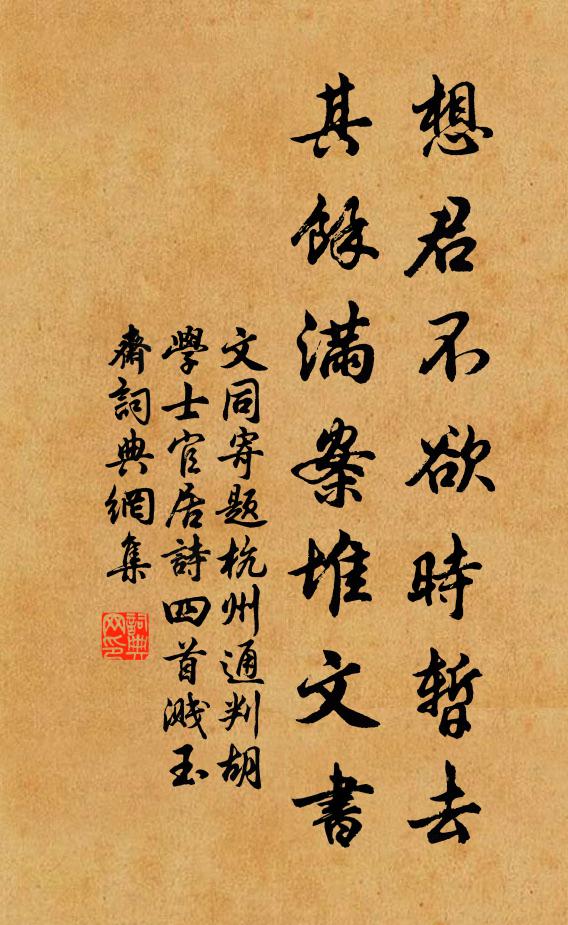 想君不欲時暫去
其餘滿案堆文書
文同寄題杭州通判胡
學士官居詩四首濺玉
齋詞典網集
詞典
网印